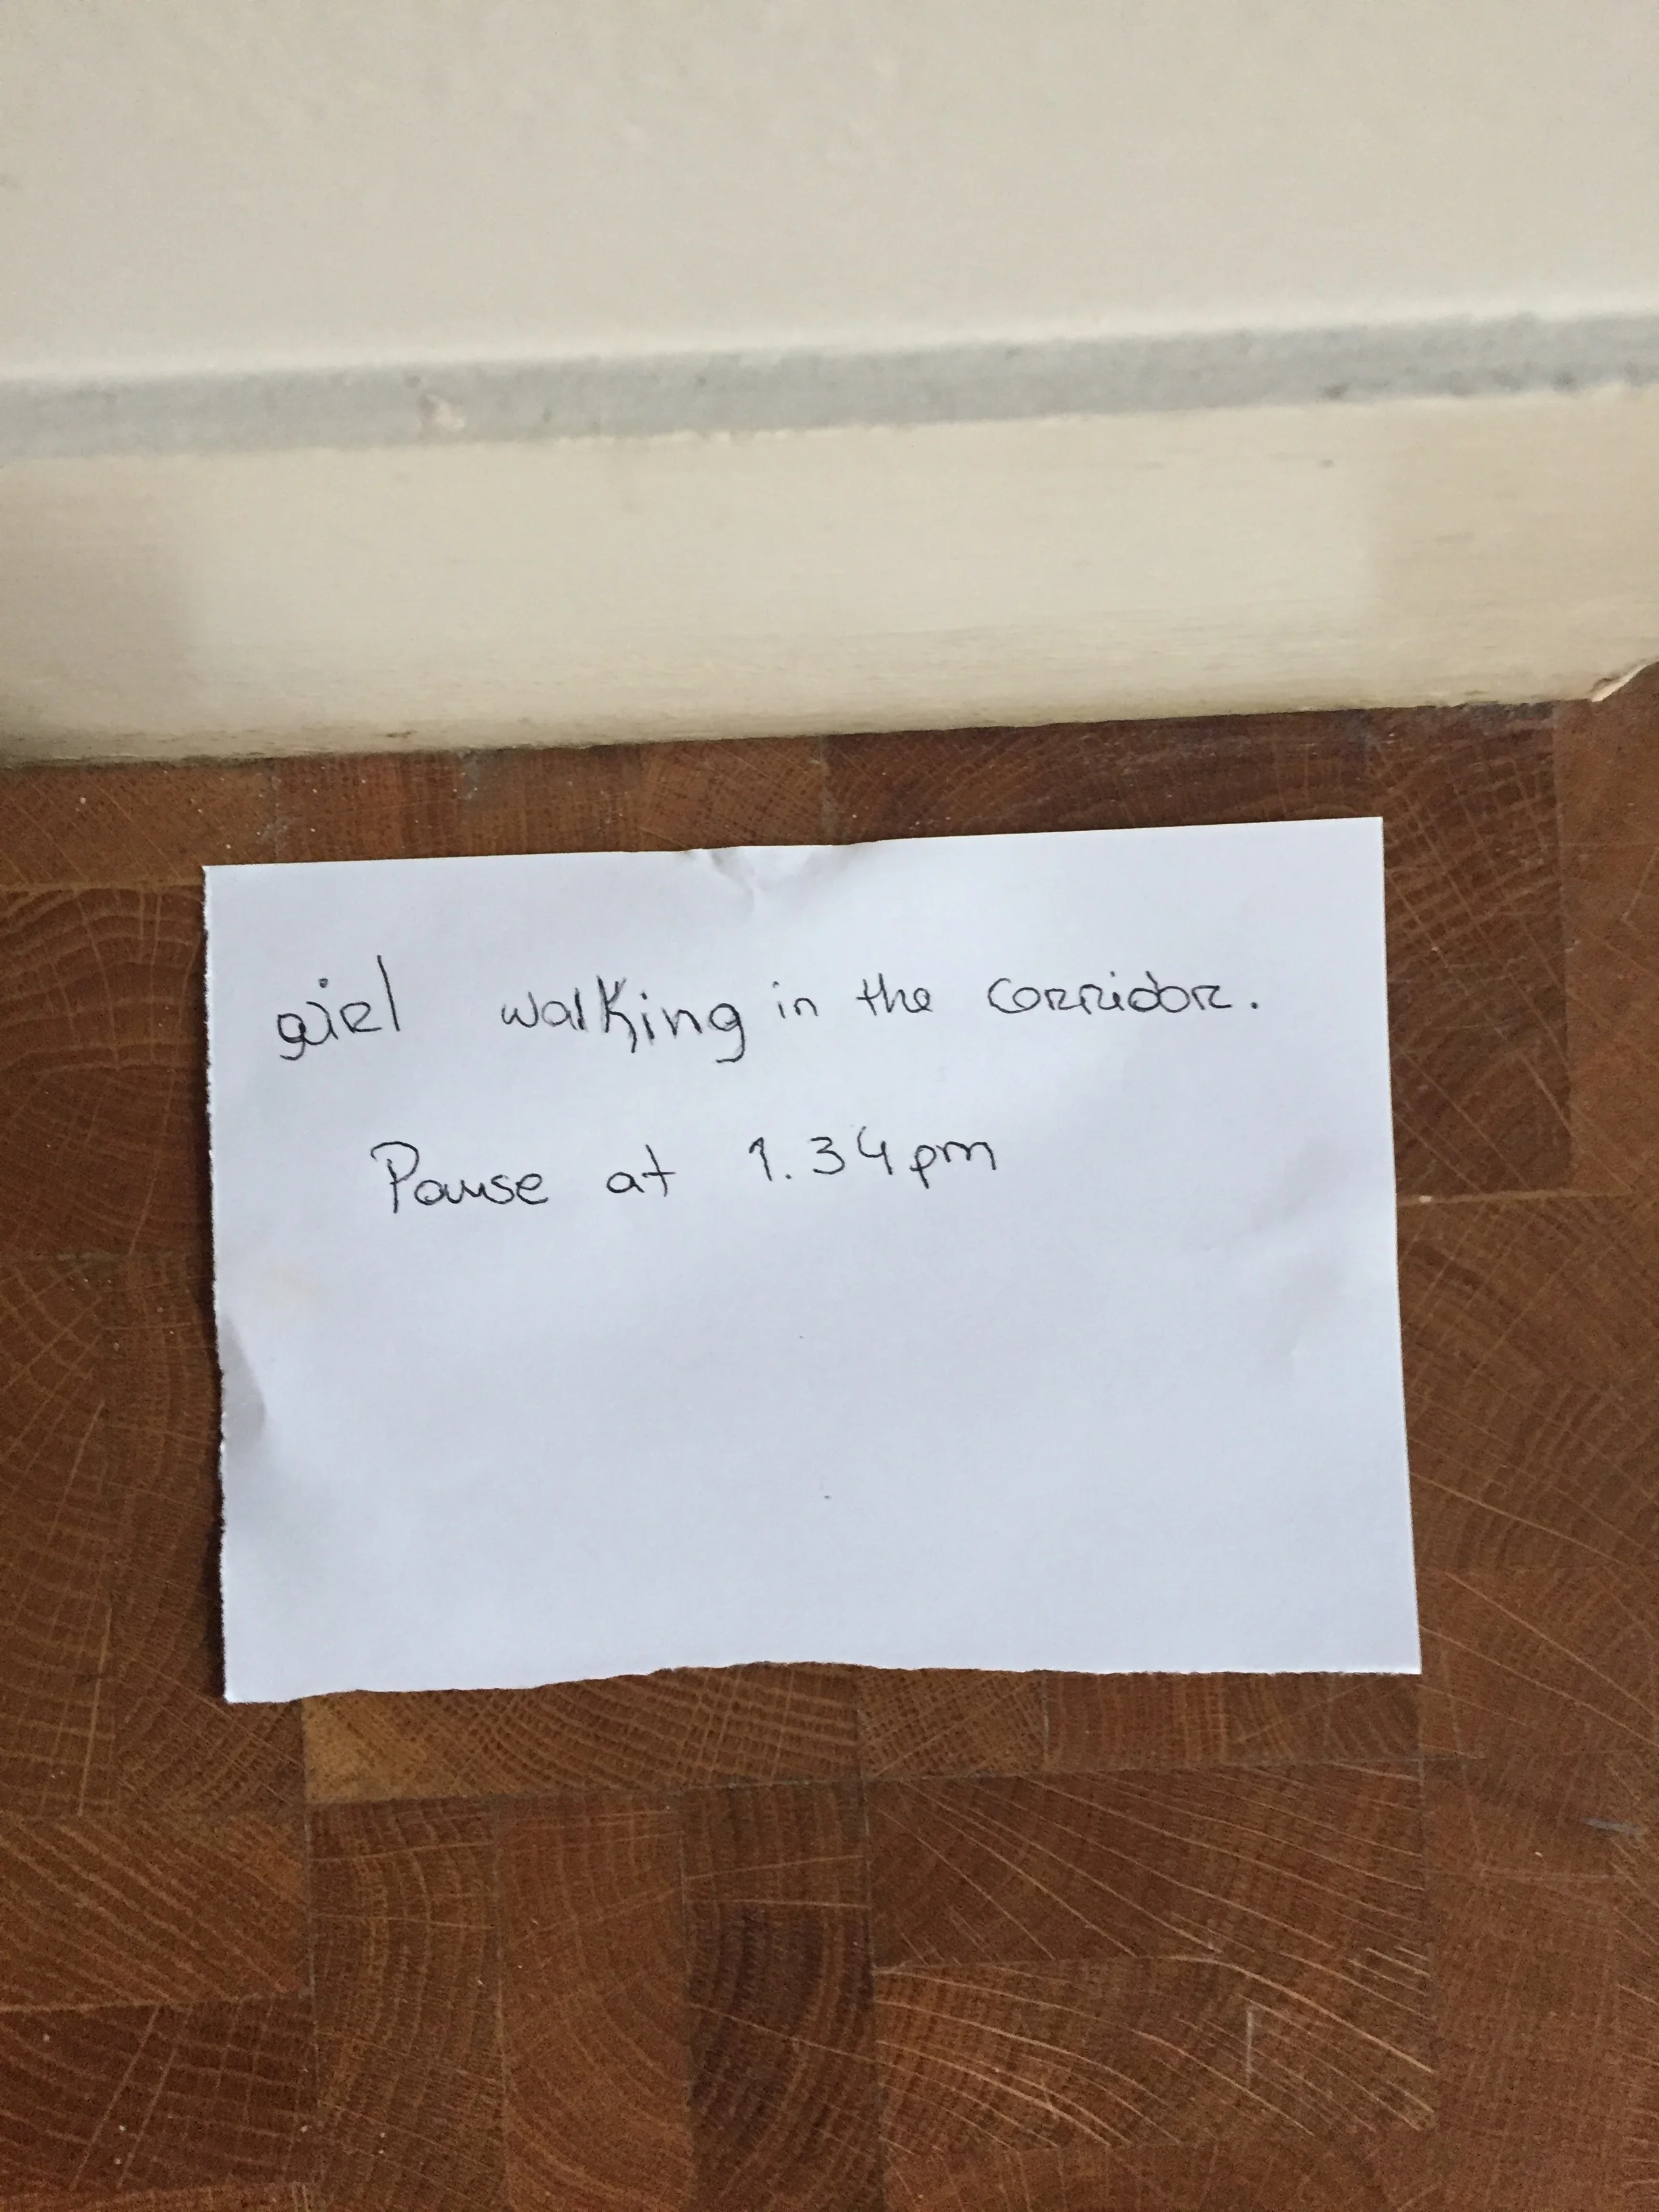 girl walking in the corridor.
Pause at 1.34pm